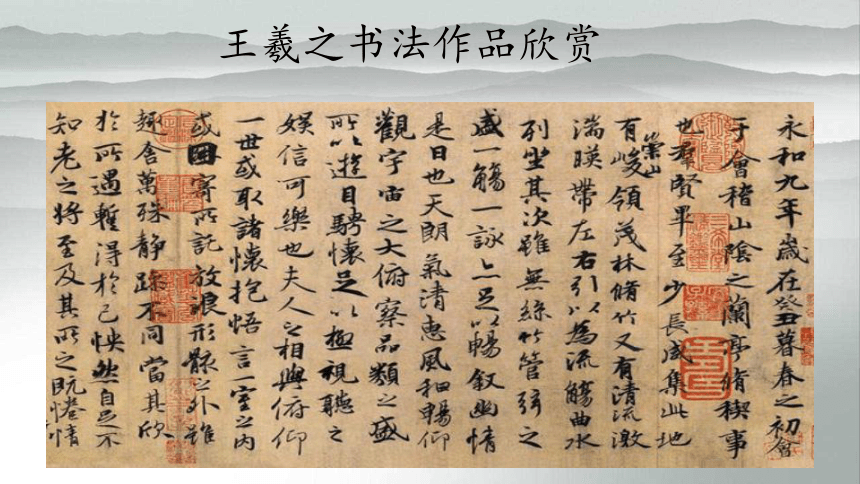 王羲之书法作品欣赏
永和九年歲在癸丑暮春之初會
于會稽山陰之蘭亭脩稧事
也羣賢畢至少長咸集此地
有崇山峻領茂林脩竹又有清流激
湍暎帶左右引以為流觴曲水
列坐其次雖無絲竹管弦之
盛一觴一詠亦足以暢叙幽情
是日也天朗氣清惠風和暢仰
觀宇宙之大俯察品類之盛
所以遊目騁懷足以極視聽之
娛信可樂也夫人之相與俯仰
一世或取諸懷抱悟言一室之內
或因寄所託放浪形骸之外雖
趣舍萬殊静躁不同當其欣
於所遇暫得於己怏然自足不
知老之將至及其所之既惓情